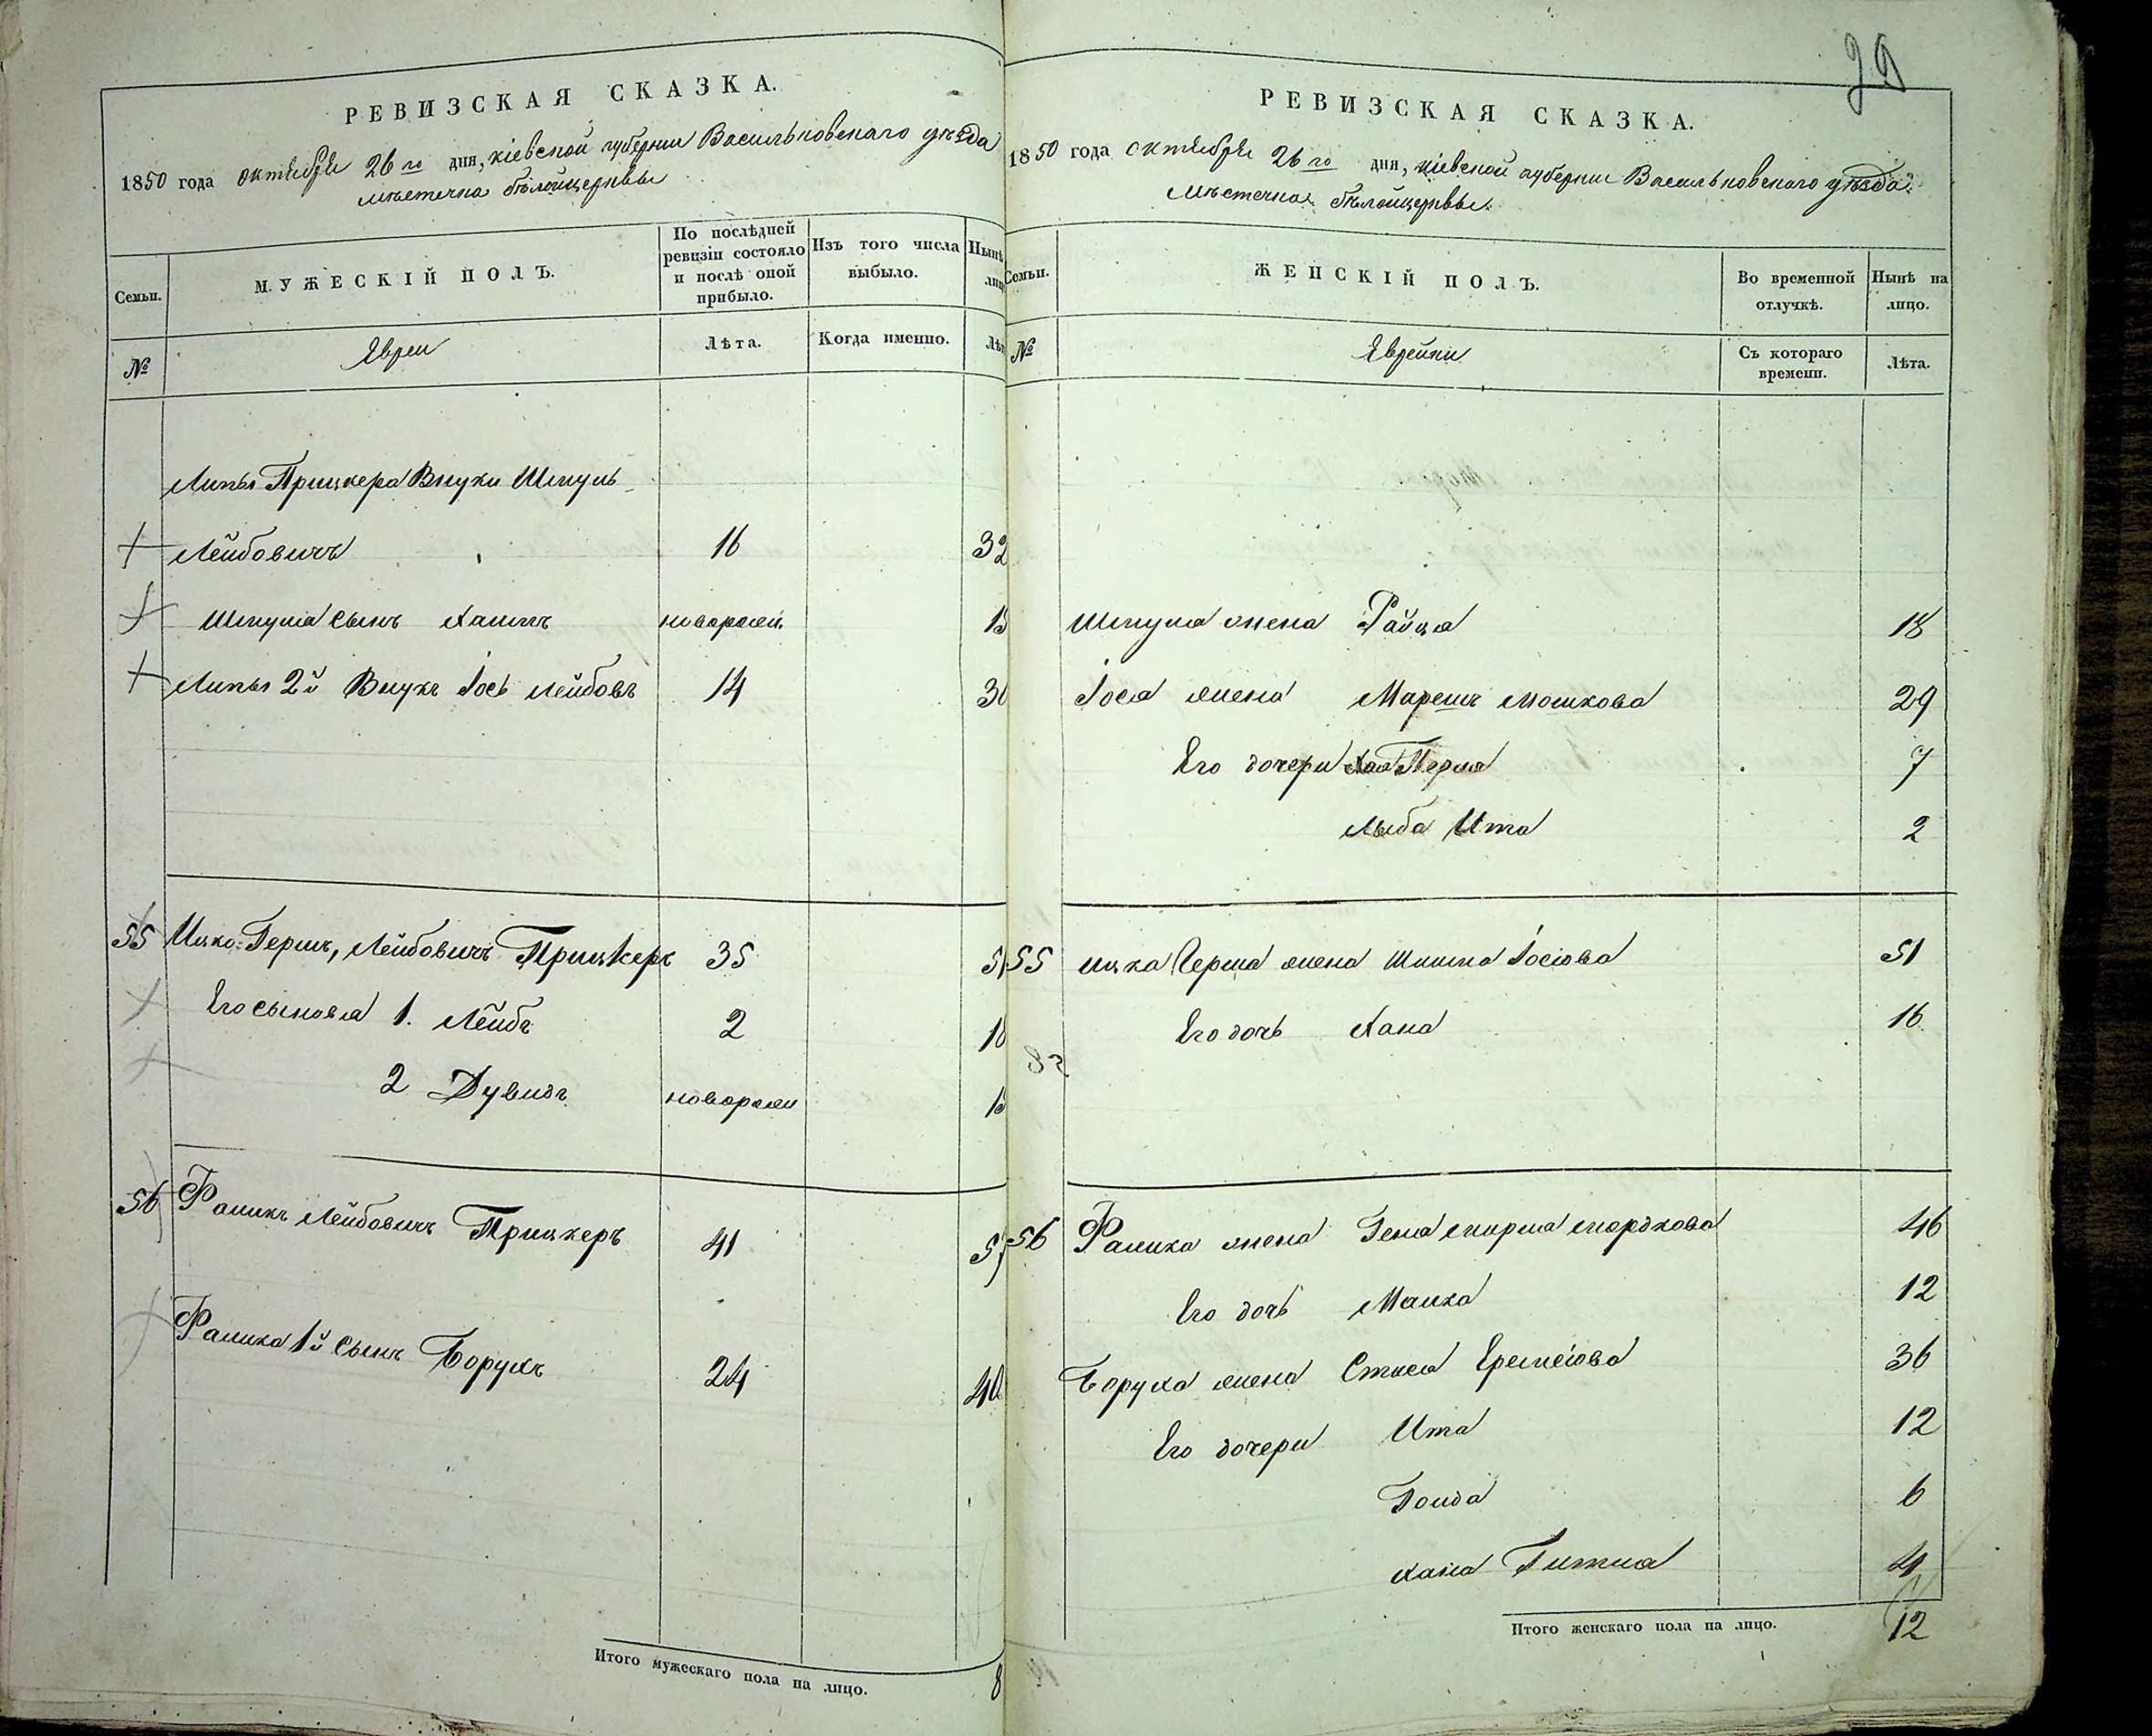 РЕВИЗСКАЯ СКАЗКА.
1850 года октября 26го дня, кіевской губерніи Васильковскаго уѣзда
мѣстечка бѣлойцеркви
Семьи.
МУЖЕСКІЙ ПОЛЪ.
По послѣдней ревизіи состояло и послѣ оной прибыло.
Изъ того числа выбыло.
Нынѣ
№
Евреи
Лѣта.
Когда именно.
Липы Прицкера Внуки Шмуль
Лейбовичъ 16 32
Шмуля сынъ Хаимъ новорож. 15
Липы 2й Внукъ Іось Лейбовъ 14 30
55 Ицко-Гершъ, Лейбовичъ Прицкеръ 35 51
Его сыновья 1. Лейбъ 2 18
2 Дувидъ новорож 15
56 Фаликъ Лейбовичъ Прицкеръ 41 57
Фалика 1й сынъ Борухъ 24 40
Итого мужескаго пола на лицо. 8
29
РЕВИЗСКАЯ СКАЗКА.
1850 года октября 26го дня, кіевской губерніи Васильковскаго уѣзда
мѣстечка бѣлойцеркви
Семьи.
ЖЕНСКІЙ ПОЛЪ.
Во временной отлучкѣ.
Нынѣ на лицо.
№
Еврейки
Съ котораго времени.
Лѣта.
Шмуля жена Райца 18
Іося жена Маремъ Мошкова 29
Его дочери Хая Перла 7
Ита 2
55 Ицка Герша жена Іосіова 51
Его дочь Хана 16
56 Фалика жена Геня мордкова 46
Его дочь Малка 12
Боруха жена Стыся 36
Его дочери Ита 12
Голда 6
Хана Гитля 4
Итого женскаго пола на лицо. 12